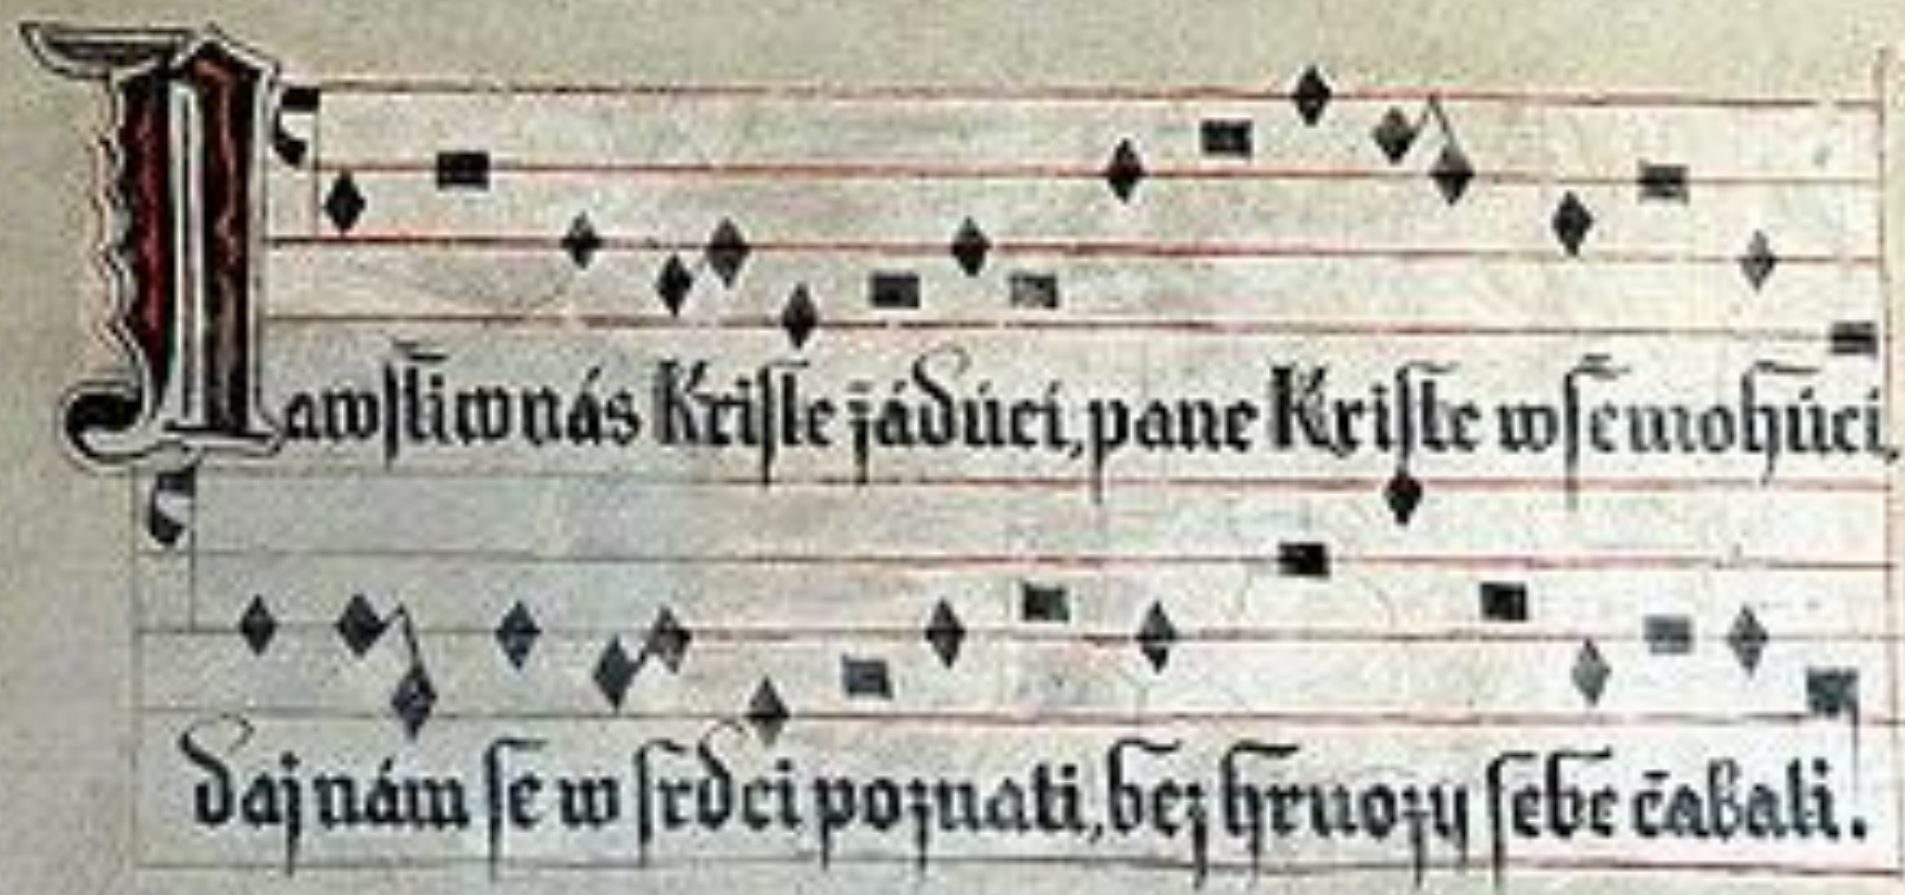 Nawſſtiw nás Kriſte žádúcí, pane Kriſte wſſemohúcí,
daj nám ſe w ſrdci poznati, bez hruozy ſebe čakati.